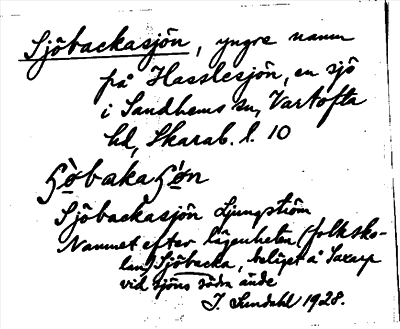 Sjöbackasjön, yngre namn
på Hasslesjön, en sjö
i Sandhems sn, Vartofta
hd, Skarab. l. 10
Sjöbackasjön Ljungström
Namnet efter lägenheten (folksko-
lan) Sjöbacka, beläget å
vid sjöns södra ände
J. Sundahl 1928.